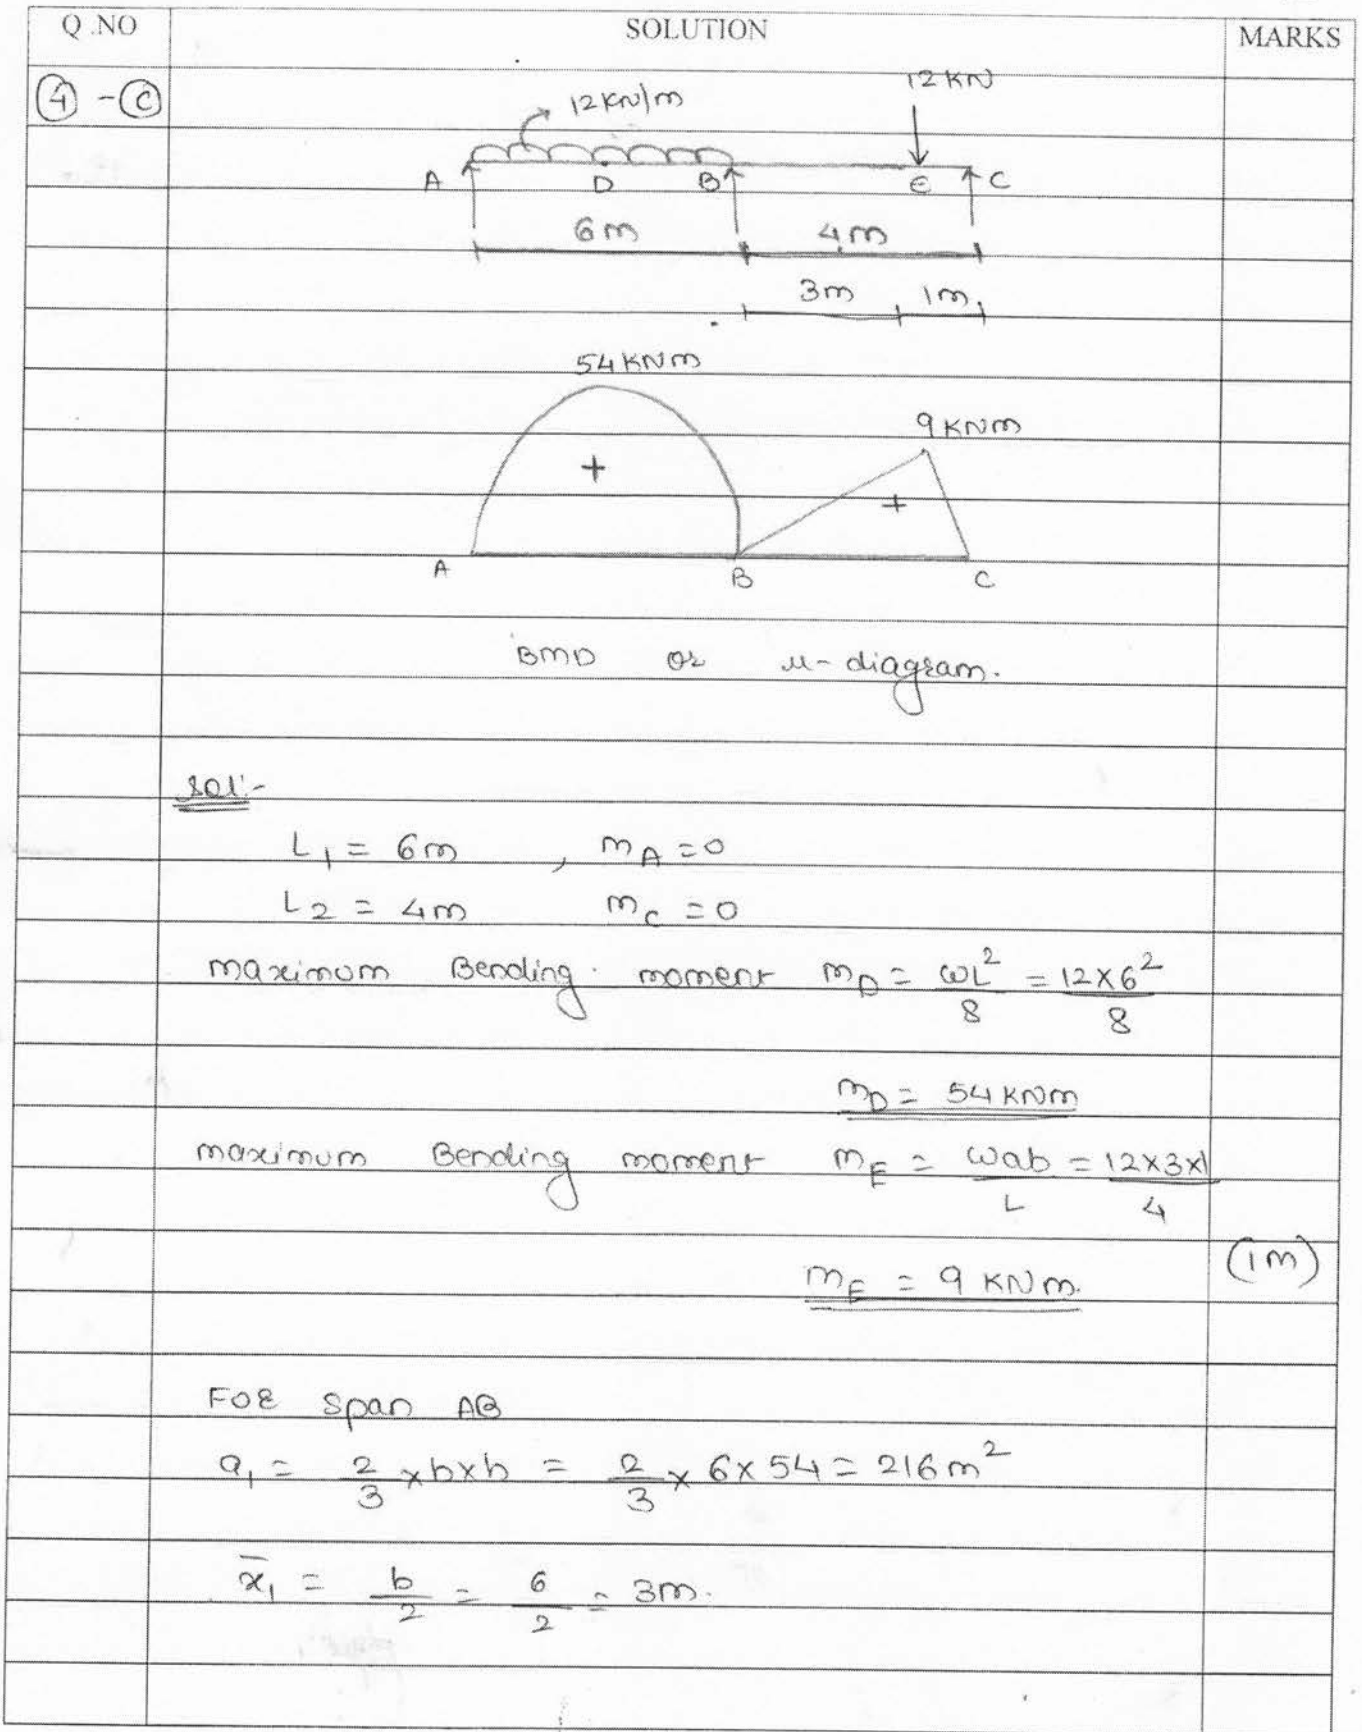 Q.NO SOLUTION MARKS
4 - C
12KN
12KN/m
A D B E C
6m 4m
3m 1m
54KNm
9KNm
+ +
A B C
BMD or μ-diagram.
Sol:-
L1 = 6m , mA = 0
L2 = 4m mC = 0
maximum Bending moment mD = ωL²/8 = 12×6²/8
mD = 54 KNm
maximum Bending moment mE = ωab/L = 12×3×1/4
mE = 9 KNm.
(1m)
FOR Span AB
a1 = 2/3 ×b×h = 2/3 × 6×54 = 216m²
x̄1 = b/2 = 6/2 = 3m.